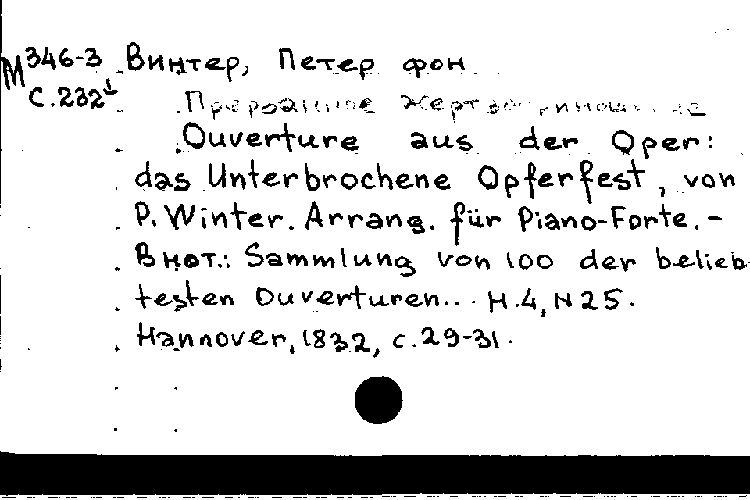 М 346-3 Винтер, Петер фон
С. 232
Прерванное жертвоприношение
Ouverture aus der Oper:
das Unterbrochene Opferfest, von
P. Winter. Arrang. für Piano-Forte. -
В нот.: Sammlung von 100 der belieb-
testen Ouverturen... H.4, N 25.
Hannover, 1832, с. 29-31.